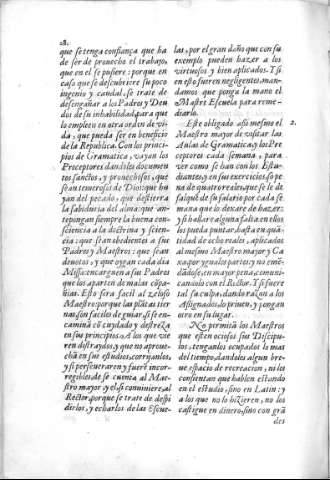 28.
que se tenga confiança que ha
de ser de prouecho el trabajo,
que en el se pusiere : porque en
caso que se descubriere su poco
ingenio y caudal, se trate de
desengañar a los Padres y Deu
dos de su inhabilidad, para que
lo empleen en otra orden de vi-
da, que pueda ser en beneficio
de la Republica. Con los princi-
pios de Gramatica, vayan los
Preceptores dandoles documen-
tos sanctos, y prouechosos, que
sean temerosos de Dios: que hu
yan del pecado, que destierra
la sabiduria del alma: que an-
tepongan siempre la buena con-
sciencia a la doctrina y scien-
cia : que sean obedientes a sus
Padres y Maestros : que sean
deuotos, y que oygan cada dia
Missa: encarguen a sus Padres
que los aparten de malas cõpa-
ñias. Esto sera facil al zeloso
Maestro: porque las plãtas tier
nas, son faciles de guiar, si se en-
caminã cõ cuydado y destreza
en sus principios. A los que vie
ren distraydos, y que no aproue-
chã en sus estudios, corrijanlos,
y si perseueraren y fuerẽ incor-
regibles, de se cuenta al Mae-
stro mayor, y el si conuiniere, al
Rector, porque se trate de despi
dirlos, y echarlos de las Escue-
las, por el gran daño que con su
exemplo pueden hazer a los
virtuosos y bien aplicados. Y si
en esto fueren negligentes, man-
damos que ponga la mano el
Maestre Escuela para reme-
diarlo.
Este obligado assi mesmo el 2.
Maestro mayor de visitar las
Aulas de Gramatica, y los Pre
ceptores cada semana, para
ver como se han con los Estu-
diantes, y en sus exercicios, so pe
na de quatro reales, que se le de
falquẽ de su salario por cada se
mana que lo dexare de hazer:
y si hallare alguna falta en ellos
los pueda puntar, hasta en quã-
tidad de ocho reales, aplicados
al mesmo Maestro mayor y Ca
xa por yguales partes; y no emẽ-
dãdose, en mayor pena, comuni-
candolo con el Rector. Y si fuere
tal su culpa, dando razon a los
Assignados, lo priuen, y pongan
otro en su lugar.
No permitã los Maestros
que esten ociosos sus Discipu-
los, tenganlos ocupados lo mas
del tiempo, dandoles algun bre-
ue espacio de recreacion, ni les
consientan que hablen estando
en el estudio, sino en Latin : y
a los que no lo hizieren, no los
castigue en dinero, sino con grã
des